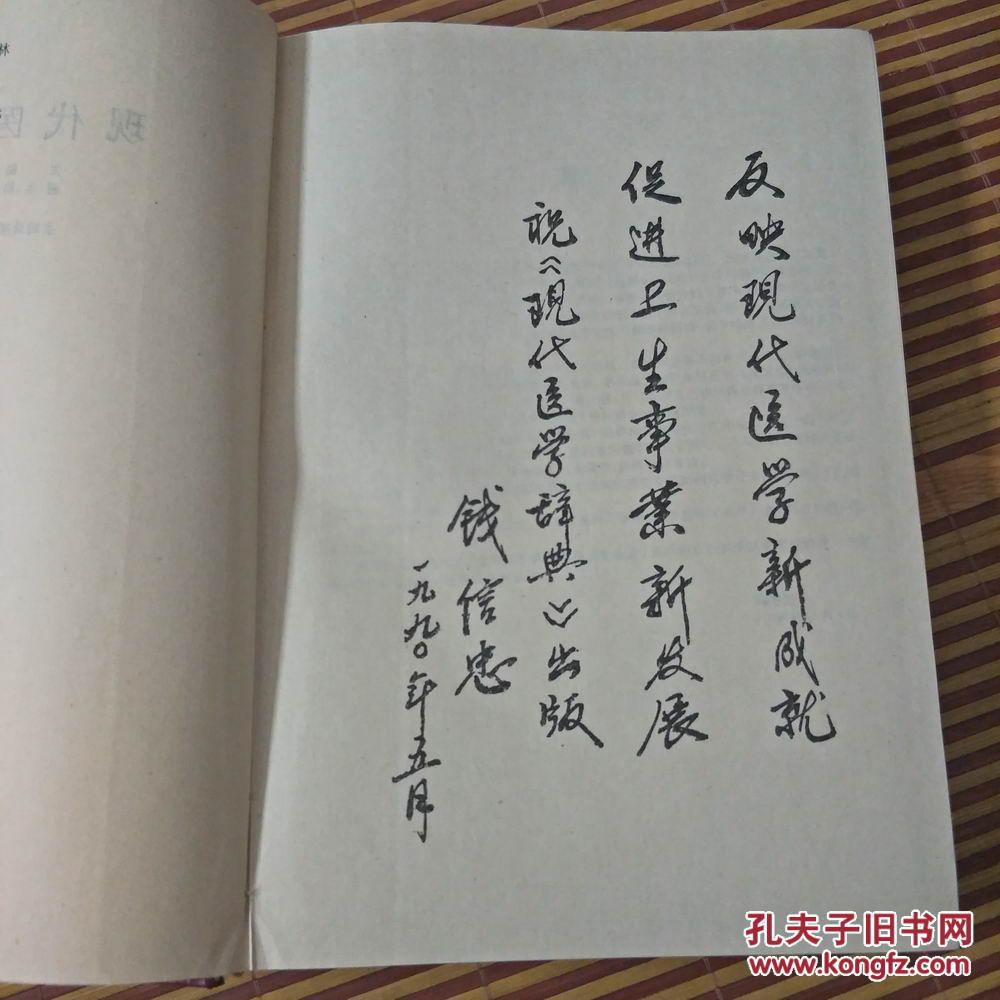 反映现代医学新成就
促进卫生事业新发展
祝《现代医学辞典》出版
钱信忠
一九九〇年五月
林
现代医
孔夫子旧书网
www.kongfz.com